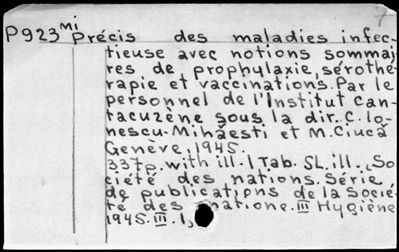 7
P923 mi Précis des maladies infec-
tieuse avec notions sommai
res de prophylaxie, sérothé-
rapie et vaccinations. Par le
personnel de l'Institut Can-
tacuzène sous la dir. C. Io-
nescu-Mihăesti et M. Ciucă
Genève, 1945.
337p. with ill. 1 Tab. SL. ill., So
ciété des nations. Série
de publications de la Socié-
té des natione. III Hygiène
1945. III. 1,